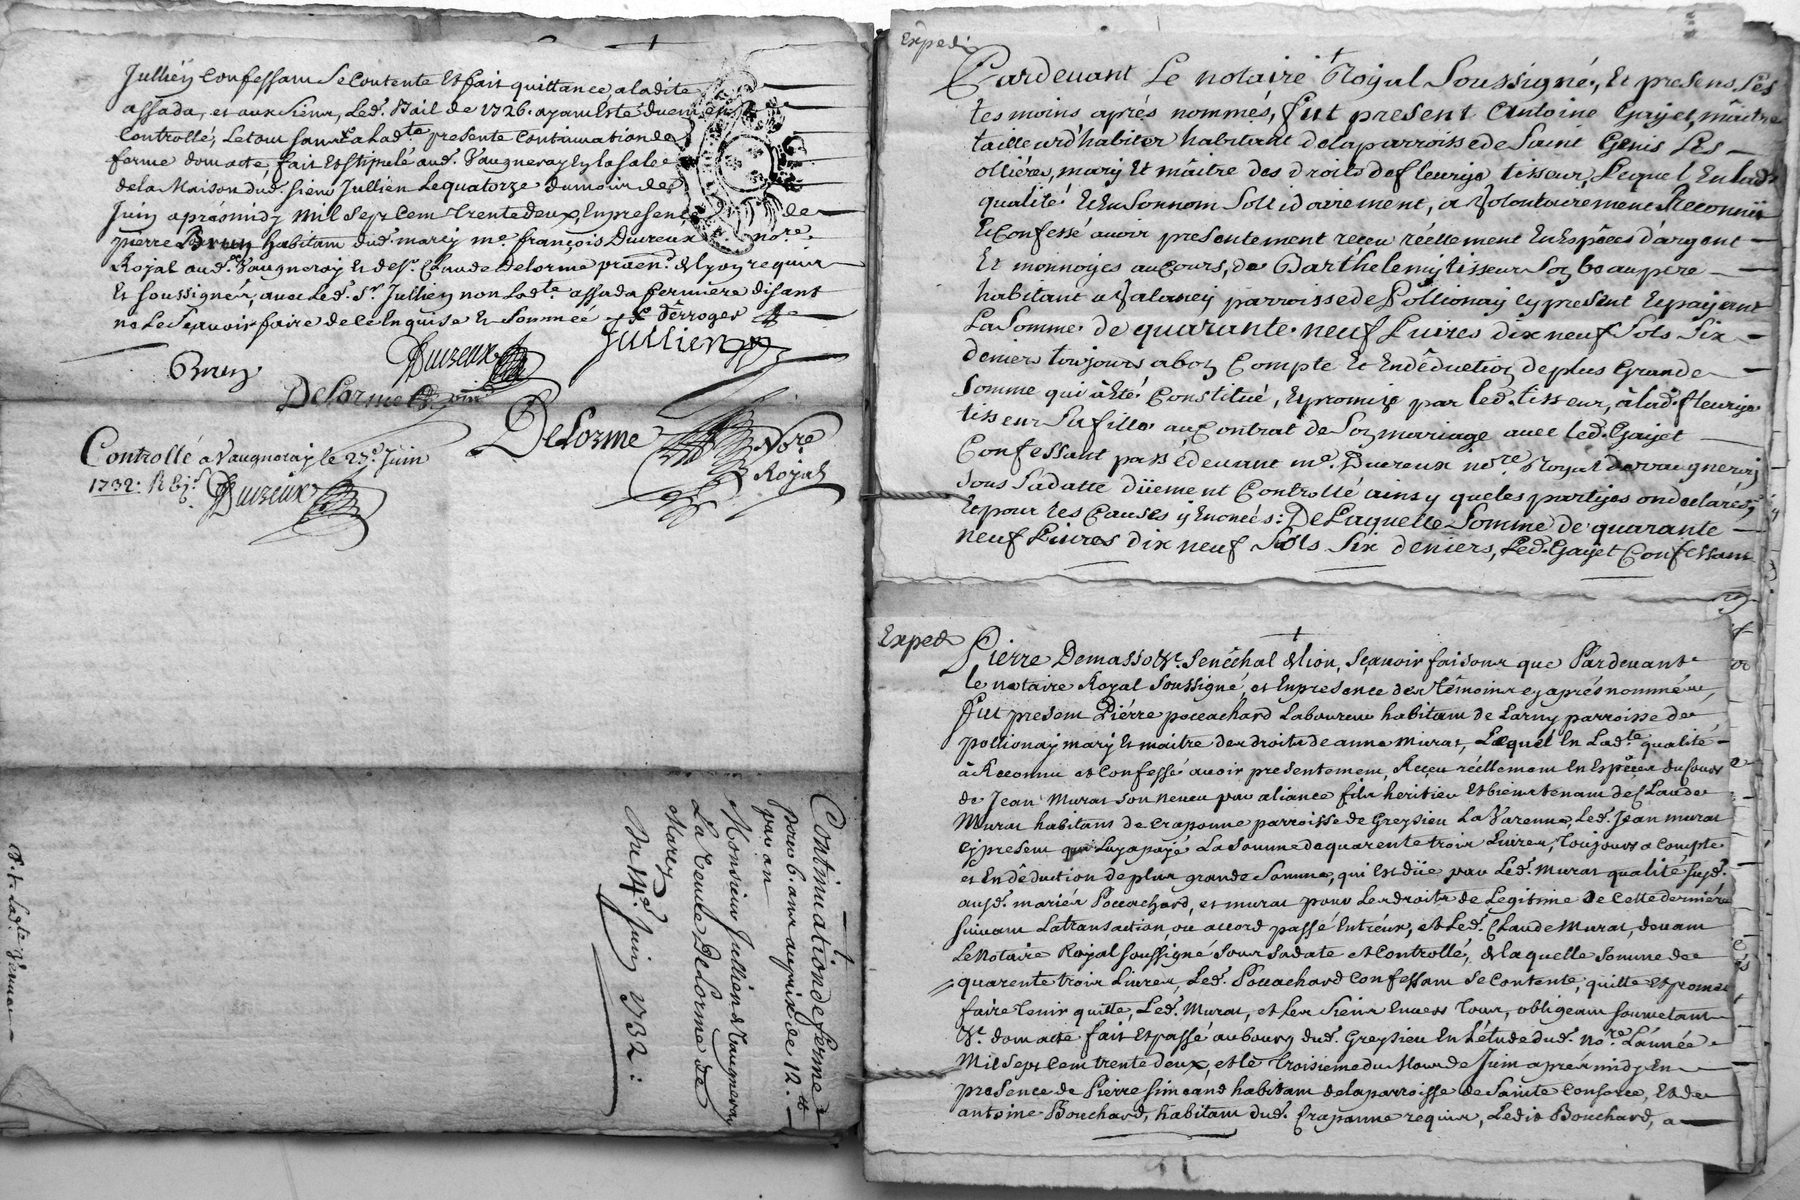 Jullien Confessant Se Contente Et fait quittance, a ladite
assada, et aux siens, Led. Bail de 1726. ayant Esté düement
Controllé, Le tout sans la ladte presente Continuation de
ferme dont acte, fait Et stipulé aud. Vaugneray En la sale
de la Maison dud. sieur Jullien Le quatorze du mois de
Juin aprésmidy Mil Sept Cent Trente deux, En presence de
pierre Brun habitant dud. marcy me. françois Ducreux nore.
Royal aud. Vaugneray Et de sr. Claude Delorme praen. de Lyon requis
Et soussignés, avec Led. Sr. Jullien non Ladte. assada fermiere disant
ne Le Sçavoir faire de ce Enquise Et Sommée
Jullien
Brun
Ducreux
Delorme
Delorme
Nore
Royal
Controllé a Vaugneray le 27e. Juin
1732. Ducreux
Continuation de ferme
pour 6. ans au prix de 12.tt
par an
Monsieur Jullien de Vaugneray
La Veuve Delorme de
Marcy
Du 14e. Juin 1732:
Expedié
Pardevant Le notaire Royal Soussigné, Et presens Les
tesmoins aprés nommés, fut present Antoine Gayet, maître
tailleur d'habits habitant de la parroisse de Saint Genis Les
ollières, mary Et maître des droits de fleurije tisseur, Lequel En lad.
qualité Et En Son nom Sollidairement, a Volontairement Reconnü
Et Confessé avoir presentement reçeu réellement En Espèces d'argent
Et monnoyes au Cours, de Barthélemy tisseur Son beaupere
habitant a Valancy parroisse de Pollionay cy present Et payant
La Somme de quarante-neuf Livres dix neuf Sols Six
deniers toujours a bon Compte Et En déduction de plus Grande
Somme qui à Eté Constitué, Et promise par led. tisseur, à lad. fleurije
tisseur Sa fille au Contrat de Son mariage avec led. Gayet
Confessant passé devant me. Ducreux nore Royal de vaugneray
Sous Sa datte düement Controllé ainsy que les partijes on declarés,
Et pour les Causes y Enoncés: De Laquelle Somme de quarante
neuf Livres dix neuf Sols Six deniers, Led. Gayet Confessant
Exped
Pierre Demasso &c. Senêchal de Lion, Sçavoir faisons que Pardevant
le notaire Royal Soussigné, et En presence des Témoins cy aprés nommés,
fut present Piérre poccachard Laboureur habitant de Larny parroisse de
pollionay mary Et maitre des droits de anne Murat, Lequel En Ladte qualité
à Reconnu et Confessé avoir presentement, Reçeu réellement En Espèces du Cours
de Jean Murat son neveu par aliance fils heritier Et bientenant de Claude
Murat habitant de Craponne parroisse de Greysieu La Varenne, Led. Jean murat
cy present qui Luy a payé La Somme de quarente trois Livres, Toujours a compte
et En déduction de plus grande Somme, qui Est düe par Led. Murat qualité susd.
ausd. mariés Poccachard, et murat pour Les droits de Legitime de Cette derniére
suivant La transaction, ou accord passé Entreux, et Led. Claude Murat, devant
Le Notaire Royal soussigné Sous Sa date et Controllé, de laquelle Somme de
quarente trois Livres, Led. Poccachard Confessant Se Contente, quitte Et promet
faire Tenir quitte, Led. Murat, et Les Siens Envers Tous, obligeant soumetant
&c. dont acte fait Et passé au bourg dud. Greysieu En L'étude dud. nore. L'année
Mil Sept Cent trente deux, et Le Troisieme du Mois de Juin aprés midy En
presence de Pierre simeand habitant de la parroisse de Sainte Consorce, Et de
antoine Bouchard, habitant dud. Craponne requis, Ledit Bouchard, a